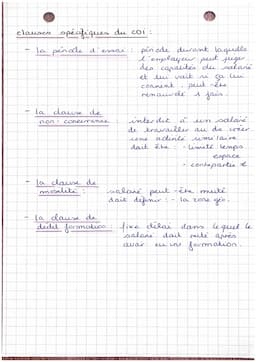 clauses spécifiques du CDI :
- la période d'essai : période durant laquelle
l'employeur peut juger
des capacités du salarié
et lui voit si ça lui
convient. peut-être
renouvelé 1 fois.
- la clause de
non-concurrence : interdit à un salarié
de travailler ou de créer
une activité similaire
doit être : - limité temps
espace
- contrepartie €
- la clause de
mobilité : salarié peut-être muté
doit définir : - la zone géo.
- la clause de
dédit formation : fixe délai dans lequel le
salarié doit resté après
avoir suivi formation.